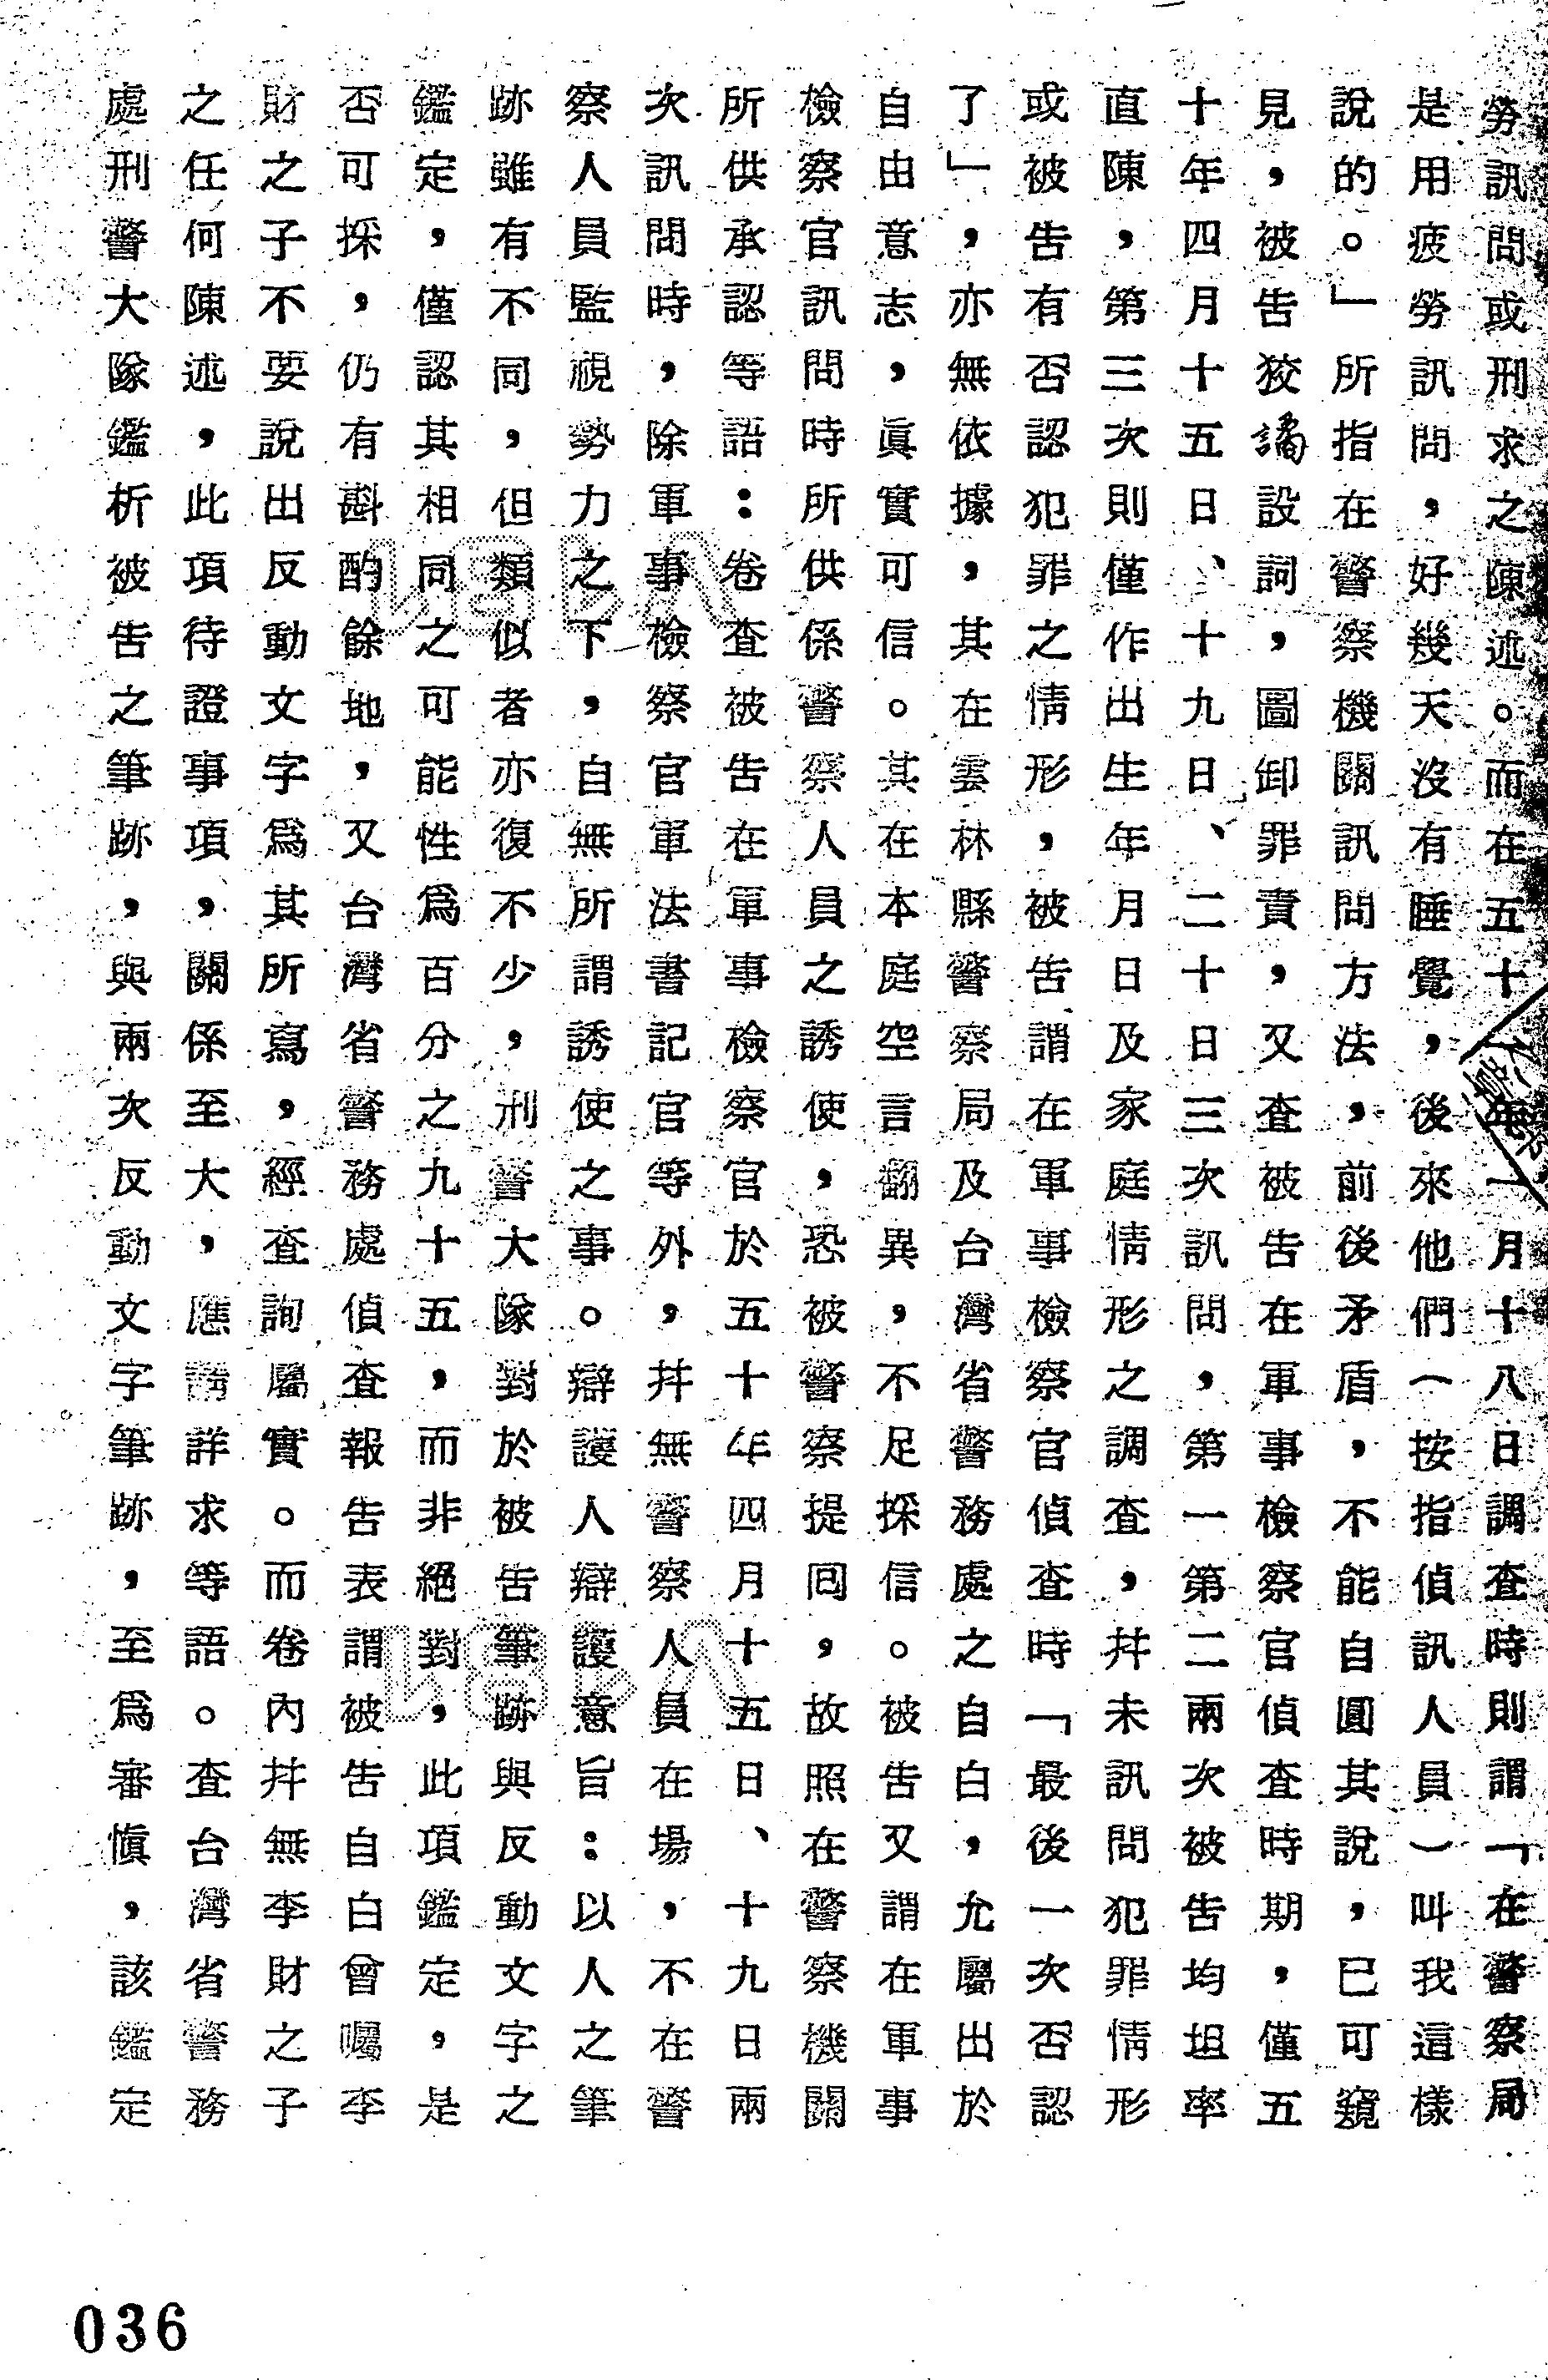 勞訊問或刑求之陳述。而在五十一年一月十八日調查時則謂「在警察局
是用疲勞訊問，好幾天沒有睡覺，後來他們（按指偵訊人員）叫我這樣
說的。」所指在警察機關訊問方法，前後矛盾，不能自圓其說，已可窺
見，被告狡譎設詞，圖卸罪責，又查被告在軍事檢察官偵查時期，僅五
十年四月十五日、十九日、二十日三次訊問，第一第二兩次被告均坦率
直陳，第三次則僅作出生年月日及家庭情形之調查，并未訊問犯罪情形
或被告有否認犯罪之情形，被告謂在軍事檢察官偵查時「最後一次否認
了」，亦無依據，其在雲林縣警察局及台灣省警務處之自白，允屬出於
自由意志，眞實可信。其在本庭空言翻異，不足採信。被告又謂在軍事
檢察官訊問時所供係警察人員之誘使，恐被警察提囘，故照在警察機關
所供承認等語：卷查被告在軍事檢察官於五十年四月十五日、十九日兩
次訊問時，除軍事檢察官軍法書記官等外，并無警察人員在場，不在警
察人員監視勢力之下，自無所謂誘使之事。辯護人辯護意旨：以人之筆
跡雖有不同，但類似者，亦復不少，刑警大隊對於被告筆跡與反動文字之
鑑定，僅認其相同之可能性爲百分之九十五，而非絕對，此項鑑定，是
否可採，仍有斟酌餘地，又台灣省警務處偵查報告表謂被告自白曾囑李
財之子不要說出反動文字爲其所寫，經查詢屬實。而卷內并無李財之子
之任何陳述，此項待證事項，關係至大，應請詳求等語。查台灣省警務
處刑警大隊鑑析被告之筆跡，與兩次反動文字筆跡，至爲審愼，該鑑定
036